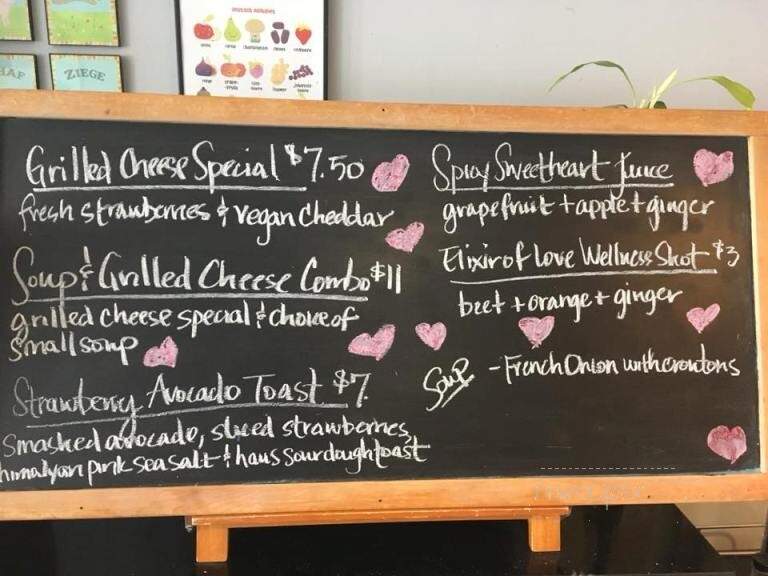 HAF
ZIEGE
Grilled Cheese Special $7.50
fresh strawberries & vegan cheddar
Soup & Grilled Cheese Combo $11
grilled cheese special & choice of
small soup
Strawberry Avocado Toast $7.
smashed avocado, sliced strawberries,
himalyan pink sea salt & haus sourdough toast
Spicy Sweetheart Juice
grapefruit + apple + ginger
Elixir of Love Wellness Shot $3
beet + orange + ginger
Soup - French Onion with croutons